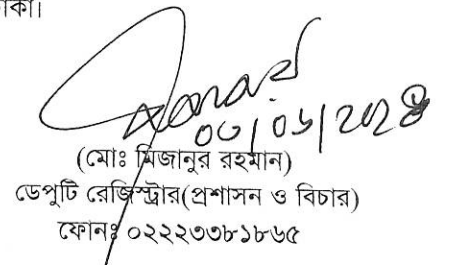 ০৩/০১/২০২৪
(মোঃ মিজানুর রহমান)
ডেপুটি রেজিস্ট্রার(প্রশাসন ও বিচার)
ফোনঃ ০২২২৩৩৮১৮৬৫